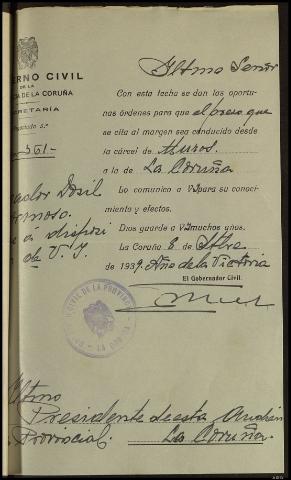 ERNO CIVIL
DE LA
IA DE LA CORUÑA
RETARÍA
Negociado 5º
-561-
ador Dosil
ormoso.
e á disposi
de V. I.
Iltmo Senor
Con esta fecha se dan las oportu-
nas órdenes para que el preso que
se cita al margen sea conducido desde
la cárcel de Muros
a la de La Coruña
Lo comunico a V.I. para su conoci-
miento y efectos.
Dios guarde a V.I. muchos años.
La Coruña 8 de Stbre
de 1939. Año de la Victoria
El Gobernador Civil,
CIVIL DE LA PROVINCIA
LA CORUÑA
Iltmo
Presidente de esta Audien
Provincial.
La Coruña.